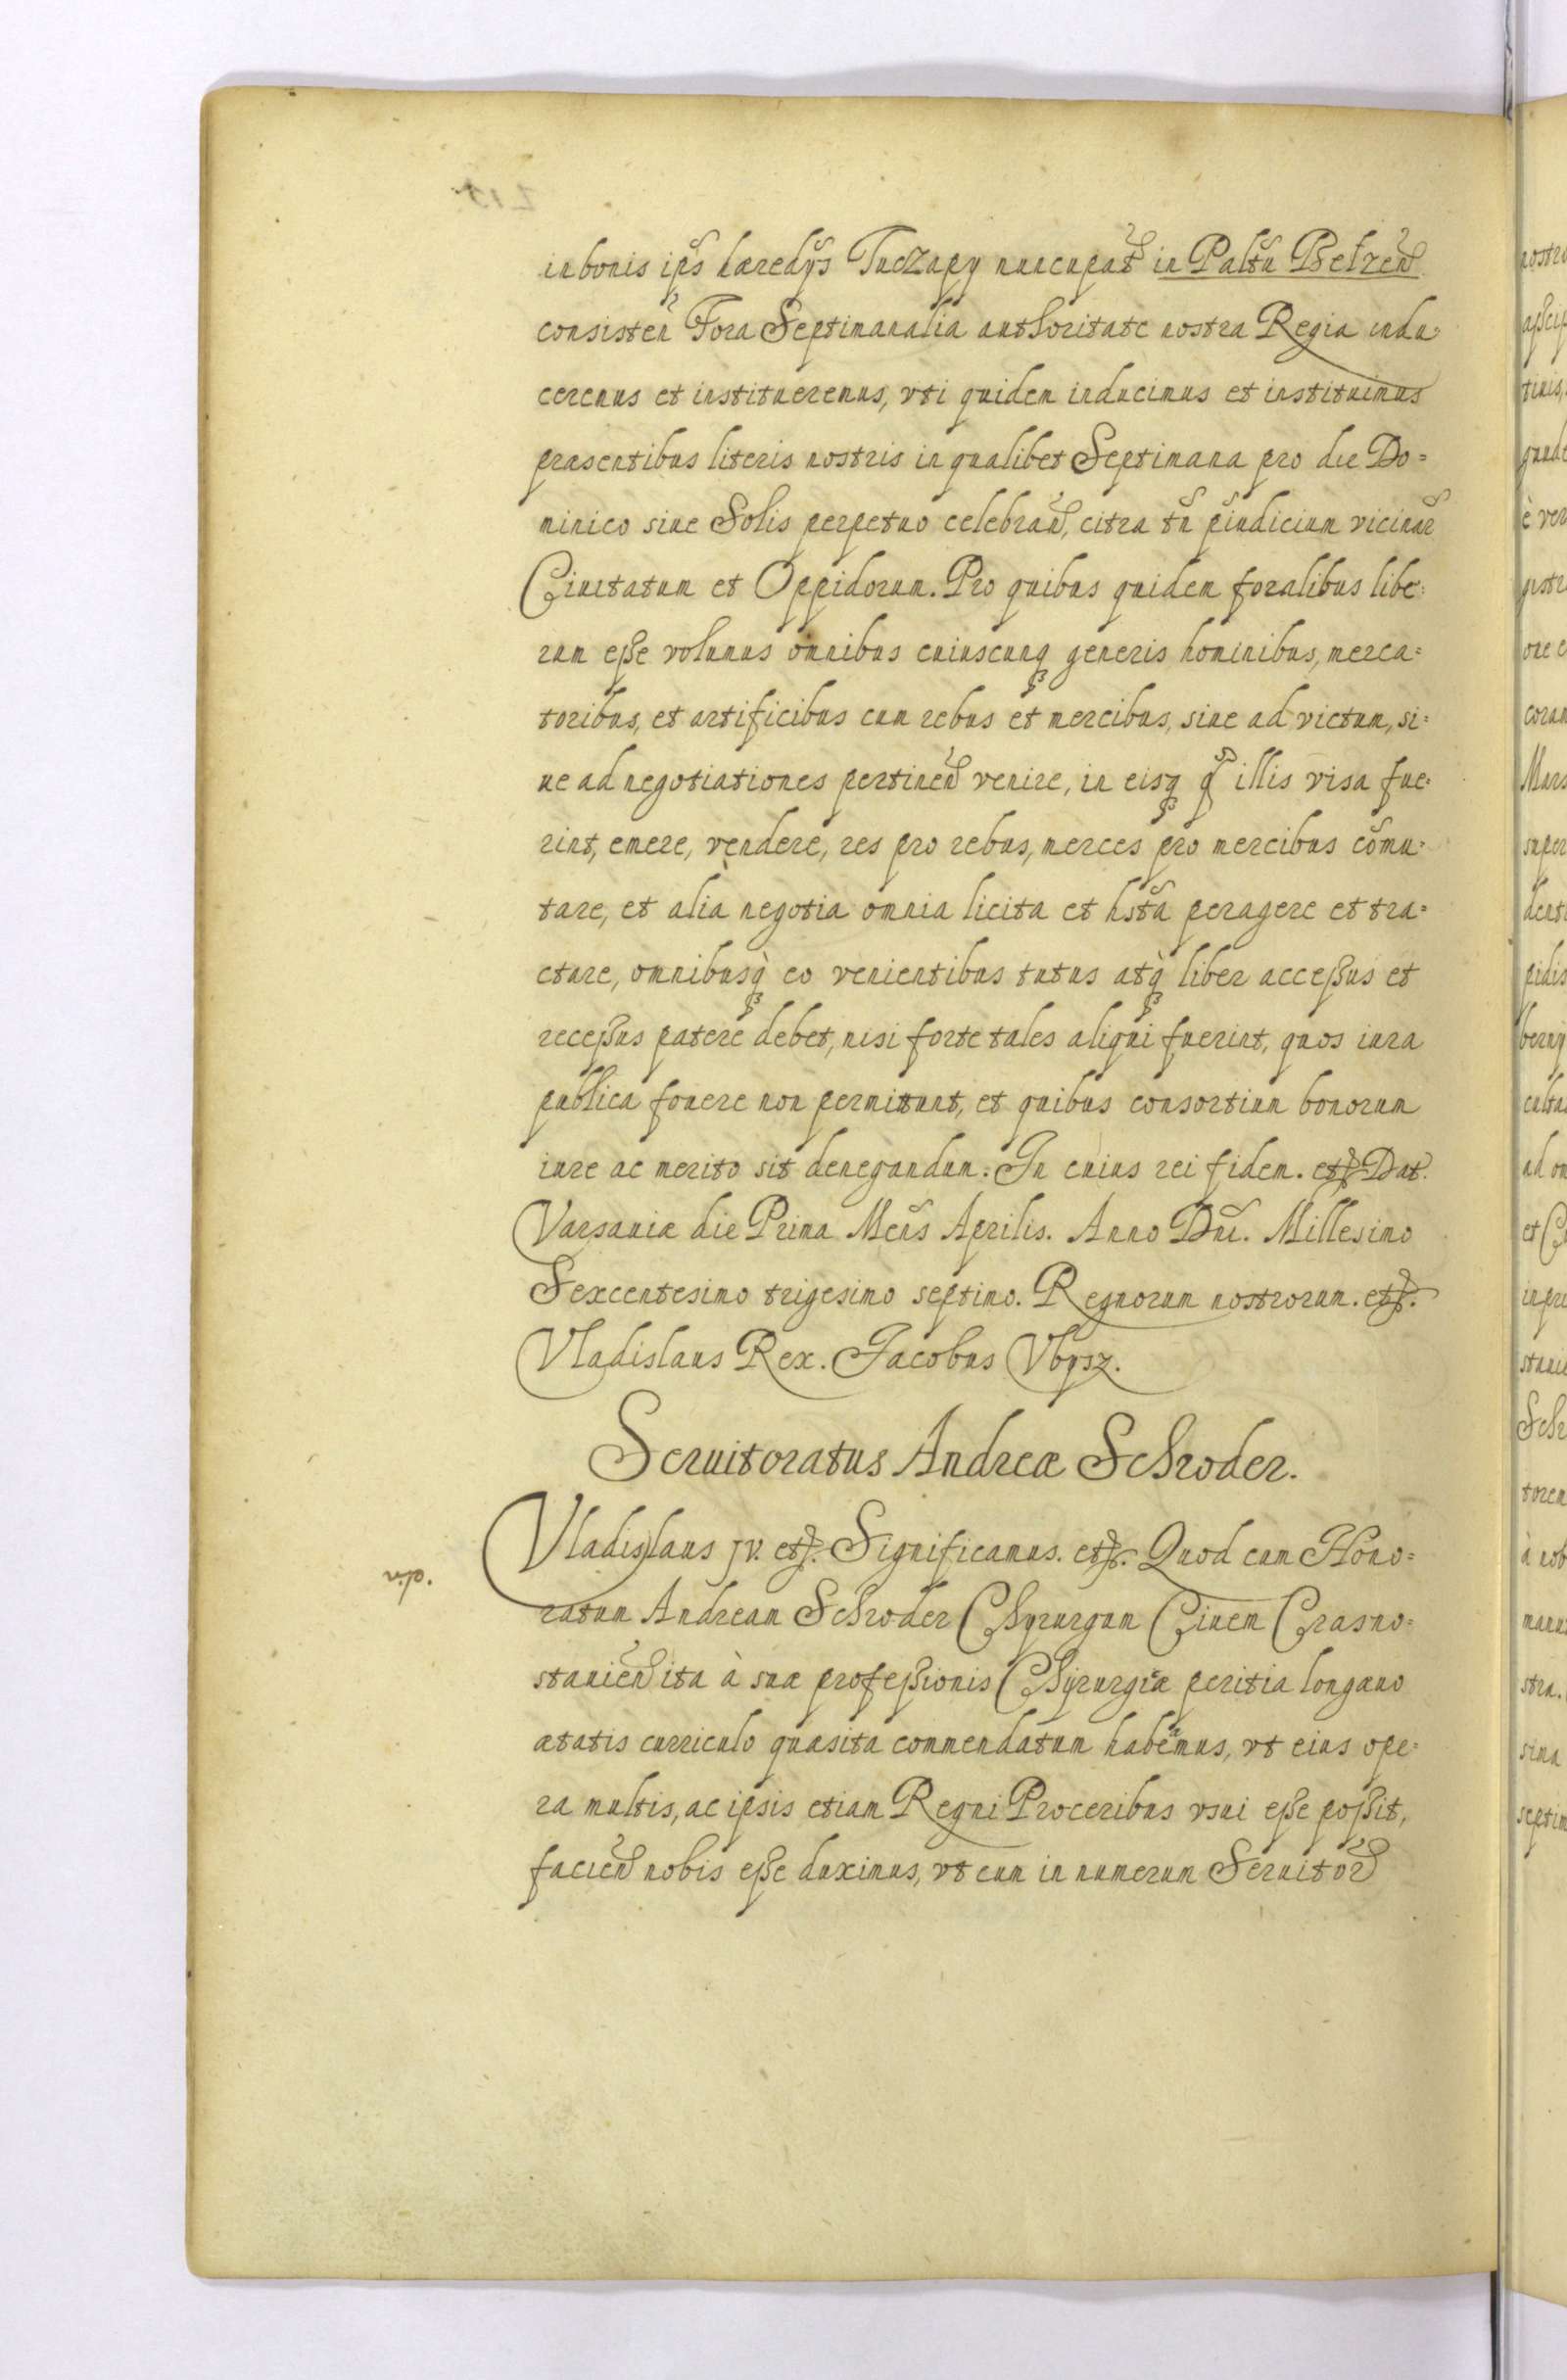 in bonis ip̃s hæredỹs Tuczapy nuncupat̃ in Palt̃u Belzen̄
consisteñ Fora Septimanalia authoritate nostra Regia indu-
ceremus et institueremus, vti quidem inducimus et instituimus
præsentibus literis nostris in qualibet Septimana pro die Do=
minico siue Solis perpetuo celebran̄, citra tñ p̃iudicium vicinar̃
Ciuitatum et Oppidorum. Pro quibus quidem foralibus libe=
rum eße volumus omnibus cuiuscunq; generis hominibus, merca=
toribus, et artificibus cum rebus et mercibus, siue ad victum, si=
ue ad negotiationes pertinen̄ venire, in eisq; q̃ illis visa fue=
rint, emere, vendere, res pro rebus, merces pro mercibus com̃u=
tare, et alia negotia omnia licita et hsta̋ peragere et tra=
ctare, omnibusq̀; eo venientibus tutus atq̀; liber acceßus et
receßus patere debet, nisi forte tales aliqui fuerint, quos iura
publica fouere non permitunt, et quibus consortium bonorum
iure ac merito sit denegandum. In cuius rei fidem. etc. Dat.
Varsauiæ die Prima Meñs Aprilis. Anno Dñi. Millesimo
Sexcentesimo trigesimo septimo. Regnorum nostrorum. etc.
Vladislaus Rex. Jacobus Vbysz.
Seruitoratus Andreæ Schroder.
Vladislaus IV. etc. Significamus. etc. Quod cum Hono=
ratum Andream Schroder Chyrurgum Ciuem Crasno=
stauien̄ ita à suæ profeßionis Chyrurgiæ peritia longæuo
ætatis curriculo quæsita commendatum habeamus, vt eius ope=
ra multis, ac ipsis etiam Regni Proceribus vsui eße poßit,
facien̄ nobis eße duximus, vt eum in numerum Seruitor̃